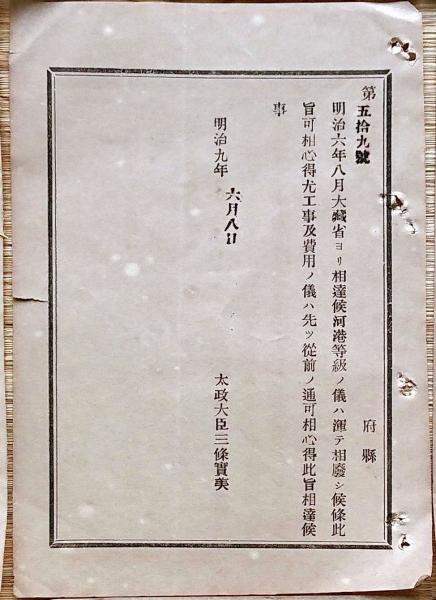 第五拾九號
府縣
明治六年八月大藏省ヨリ相達候河港等級ノ儀ハ渾テ相廢シ候條此
旨可相心得尤工事及費用ノ儀ハ先ツ從前ノ通可相心得此旨相達候
事
明治九年 六月八日
太政大臣三條實美